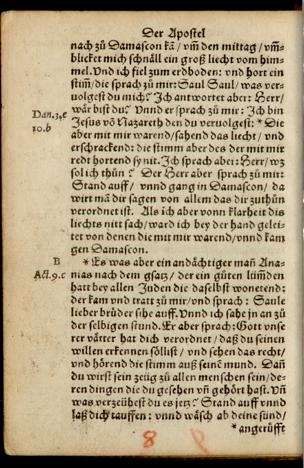 Der Apostel
nach zů Damascon kā / vm̄ den mittag / vm̄=
blicket mich schnäll ein groß liecht vom him=
mel. Vnd ich fiel zum erdboden: vnd hort ein
stim̄ / die sprach zů mir: Saul Saul / was ver=
uolgest du mich? Ich antwortet aber: Herr /
wär bist du? Vnnd er sprach zů mir: Ich bin
Dan. 3. c
Jesus vō Nazareth den du veruolgest: * Die
10. b
aber mit mir warend / sahend das liecht / vnd
erschrackend: die stimm aber des der mit mir
redt hortend sy nit. Ich sprach aber: Herr / wz
sol ich thůn? Der Herr aber sprach zů mir:
Stand auff / vnnd gang in Damascon / da
wirt mā dir sagen von allem das dir zuthůn
verordnet ist. Als ich aber vonn klarheit des
liechts nitt sach / ward ich bey der hand gelei=
tet von denen die mit mir warend / vnnd kam
gen Damascon.
B
* Es was aber ein andächtiger man̄ Ana=
Act. 9. c
nias nach dem gsatz / der ein gůten lüm̄den
hatt bey allen Juden die daselbst wonetend:
der kam vnd tratt zů mir / vnd sprach: Saule
lieber brůder sihe auff. Vnnd ich sahe jn an zů
der selbigen stund. Er aber sprach: Gott vnse
rer vätter hat dich verordnet / daß du seinen
willen erkennen söllist / vnd sehen das recht /
vnd hörend die stimm auß seinē mund. Dan̄
du wirst sein zeüg zů allen menschen sein / de=
ren dingen die du gesehen vn̄ gehört hast. Vn̄
was verzeühest du es jetz? Stand auff vnnd
laß dich tauffen: vnnd wäsch ab deine sünd /
* angerüfft
8